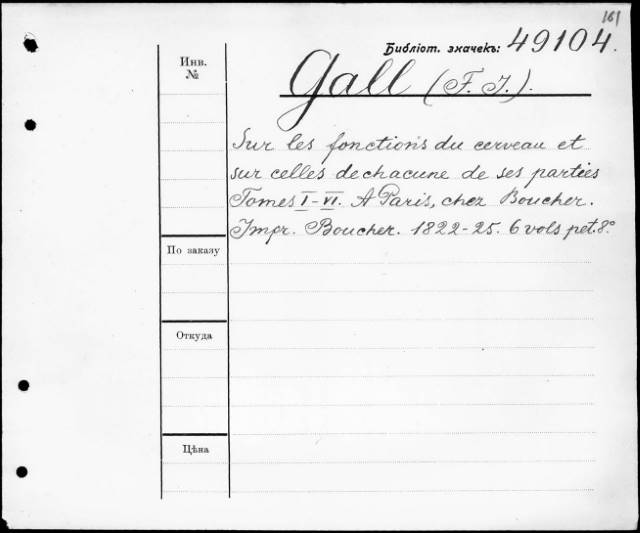 161
Библіот. значекъ: 49104.
Инв. №
Gall (F. J.).
Sur les fonctions du cerveau et
sur celles de chacune de ses parties
Tomes I-VI. A Paris, chez Boucher.
Impr. Boucher. 1822-25. 6 vols pet. 8°
По заказу
Откуда
Цѣна